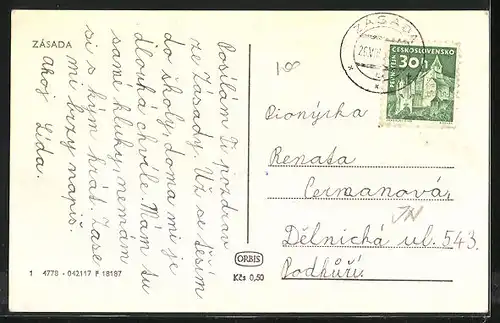 ZÁSADA
Posílám Ti pozdrav
ze Zásady. Už se těším
do školy, doma mi je
dlouhá chvíle. Mám tu
samé kluky, nemám
si s kým hrát. Zase
mi brzy napiš.
Ahoj Lída.
1 4778 - 042117 F 18187
ORBIS
Kčs 0,50
100
ZÁSADA
ČESKOSLOVENSKO
30h
Pionýrka
Renata
Cermanová,
JN
Dělnická ul. 543.
Podhůří.